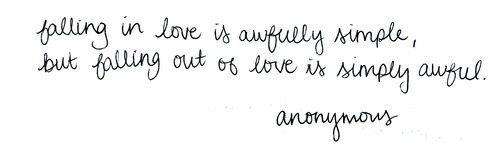 falling in love is awfully simple,
but falling out of love is simply awful.
anonymous